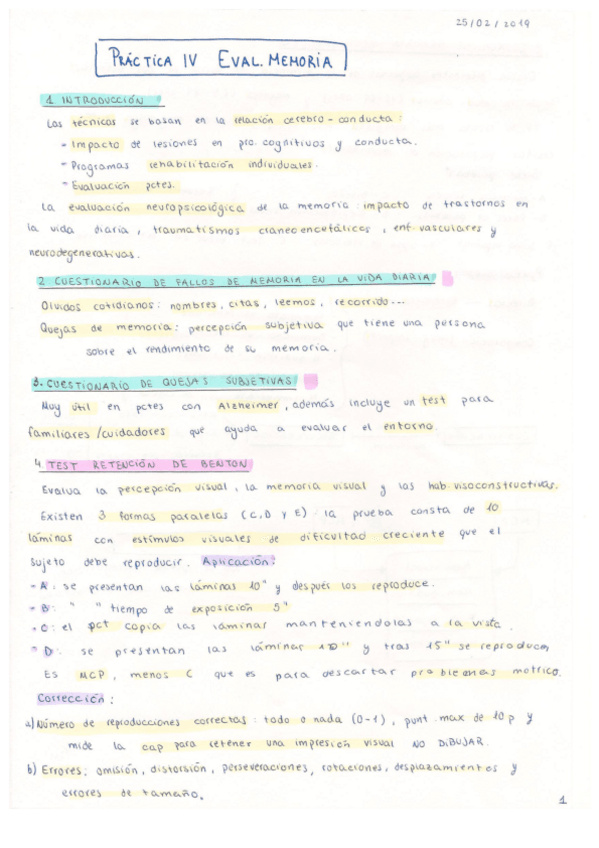 25/02/2019
PRÁCTICA IV EVAL. MEMORIA
1 INTRODUCCIÓN
Las técnicas se basan en la relación cerebro-conducta:
- Impacto de lesiones en pro. cognitivos y conducta.
- Programas rehabilitación individuales.
- Evaluación pctes.
La evaluación neuropsicológica de la memoria: impacto de trastornos en
la vida diaria, traumatismos craneoencefálicos, enf. vasculares y
neurodegenerativas.
2 CUESTIONARIO DE FALLOS DE MEMORIA EN LA VIDA DIARIA
Olvidos cotidianos: nombres, citas, leemos, recorrido...
Quejas de memoria: percepción subjetiva que tiene una persona
sobre el rendimiento de su memoria.
3. CUESTIONARIO DE QUEJAS SUBJETIVAS
Muy útil en pctes con Alzheimer, además incluye un test para
familiares/cuidadores que ayuda a evaluar el entorno.
4. TEST RETENCIÓN DE BENTON
Evalua la percepción visual, la memoria visual y las hab. visoconstructivas.
Existen 3 formas paralelas (C, D y E) la prueba consta de 10
láminas con estímulos visuales de dificultad creciente que el
sujeto debe reproducir. Aplicación:
- A: se presentan las láminas 10" y después los reproduce.
- B: " " tiempo de exposición 5"
- C: el pct copia las láminar manteniendolas a la vista.
- D: se presentan las láminar 10" y tras 15" se reproducen
Es MCP, menos C que es para descartar problemas motrico.
Corrección:
a) Número de reproducciones correctas: todo o nada (0-1), punt. max de 10p y
mide la cap para retener una impresión visual NO DIBUJAR.
b) Errores: omisión, distorsión, perseveraciones, rotaciones, desplazamientos y
errores de tamaño.
1